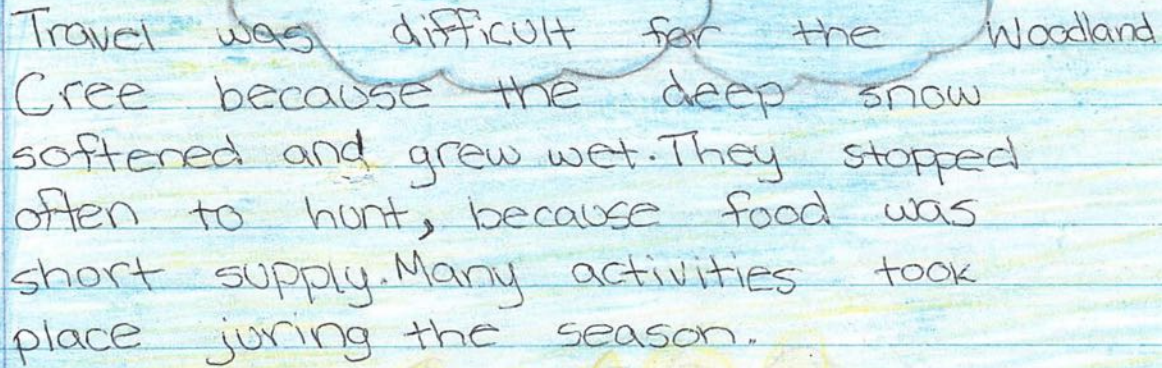 Travel was difficult for the Woodland
Cree because the deep snow
softened and grew wet. They stopped
often to hunt, because food was
short supply. Many activities took
place juring the season.